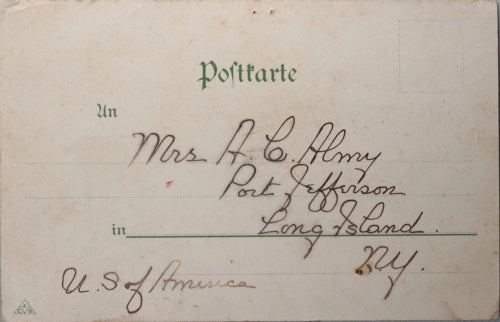 Postkarte
An
Mrs A. C. Almy
Port Jefferson
in Long Island.
NY.
U.S of America